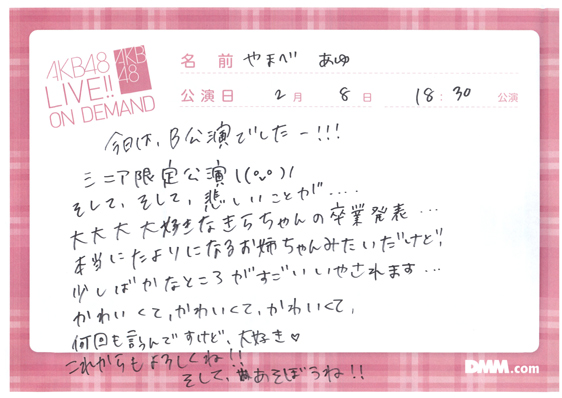 AKB48
LIVE!!
ON DEMAND
AKB
48
名前 やまべ あゆ
公演日 2月 8日 18:30 公演
今日は、B公演でしたー!!!
シニア限定公演\(^o^)/
そして、そして、悲しいことが....
大大大 大好きなきらちゃんの卒業発表...
本当にたよりになるお姉ちゃんみたいだけど!
少しばかなところがすごいいやされます...
かわいくて、かわいくて、かわいくて、
何回も言うんですけど、大好き♥
これからもよろしくね!!
そして、あそぼうね!!
DMM.com